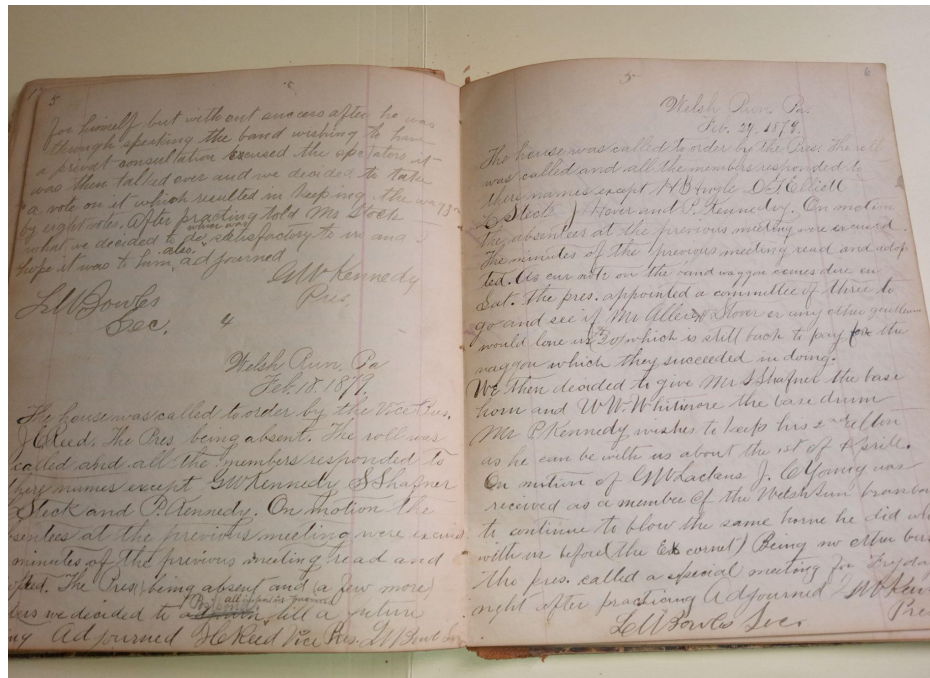 5
for himself but without success after he was
through speaking the band wishing to have
a privat consultation excused the spectators it
was then talked over and we decided to take
a vote on it which resulted in keeping the waggon
by eight votes. After practing told Mr Stock
what we decided to do, which was satisfactory to us and I
hope it was to him also. adjourned
GW Kennedy
Pres.
LMBowles
Sec.
4
Welsh Run. Pa
Feb. 18. 1879.
The house was called to order by the Vice Pres.
J C Reed. The Pres being absent. The roll was
called and all the members responded to
there names except GWKennedy S Shafner
Sleck and P. Kennedy. On motion the
absentees at the previous meeting were
minutes of the previous meeting read and
The Pres being absent and (a few more)
we decided to till a future
Adjourned Reed Vice Pres.
5
6
Welsh Run. Pa
Feb. 24. 1879.
The house was called to order by the Pres. The roll
was called and all the members responded to
there names except Elliott
Sleck Hover and P. Kennedy. On motion
the absentees at the previous meeting were excused.
The minutes of the previous meeting read and adop
ted. As our note on the band waggon comes due on
Sat. the pres. appointed a committee of three to
go and see if Mr Stover or any other gentlemen
would lone us which is still back to pay for the
waggon which they succeeded in doing.
We then decided to give Mr S Shafner the base
horn and W W. Whitmore the base drum
Mr P Kennedy wishes to keep his 2nd Alton
as he can be with us about the 1st of Aprile.
On motion of GWLackens J. C Young was
received as a member of the Welsh Run
to continue to blow the same horne he did
with us before (the Eb cornet) Being no other
the pres. called a special meeting for
night after practicing Adjourned
LMBowles Sec.